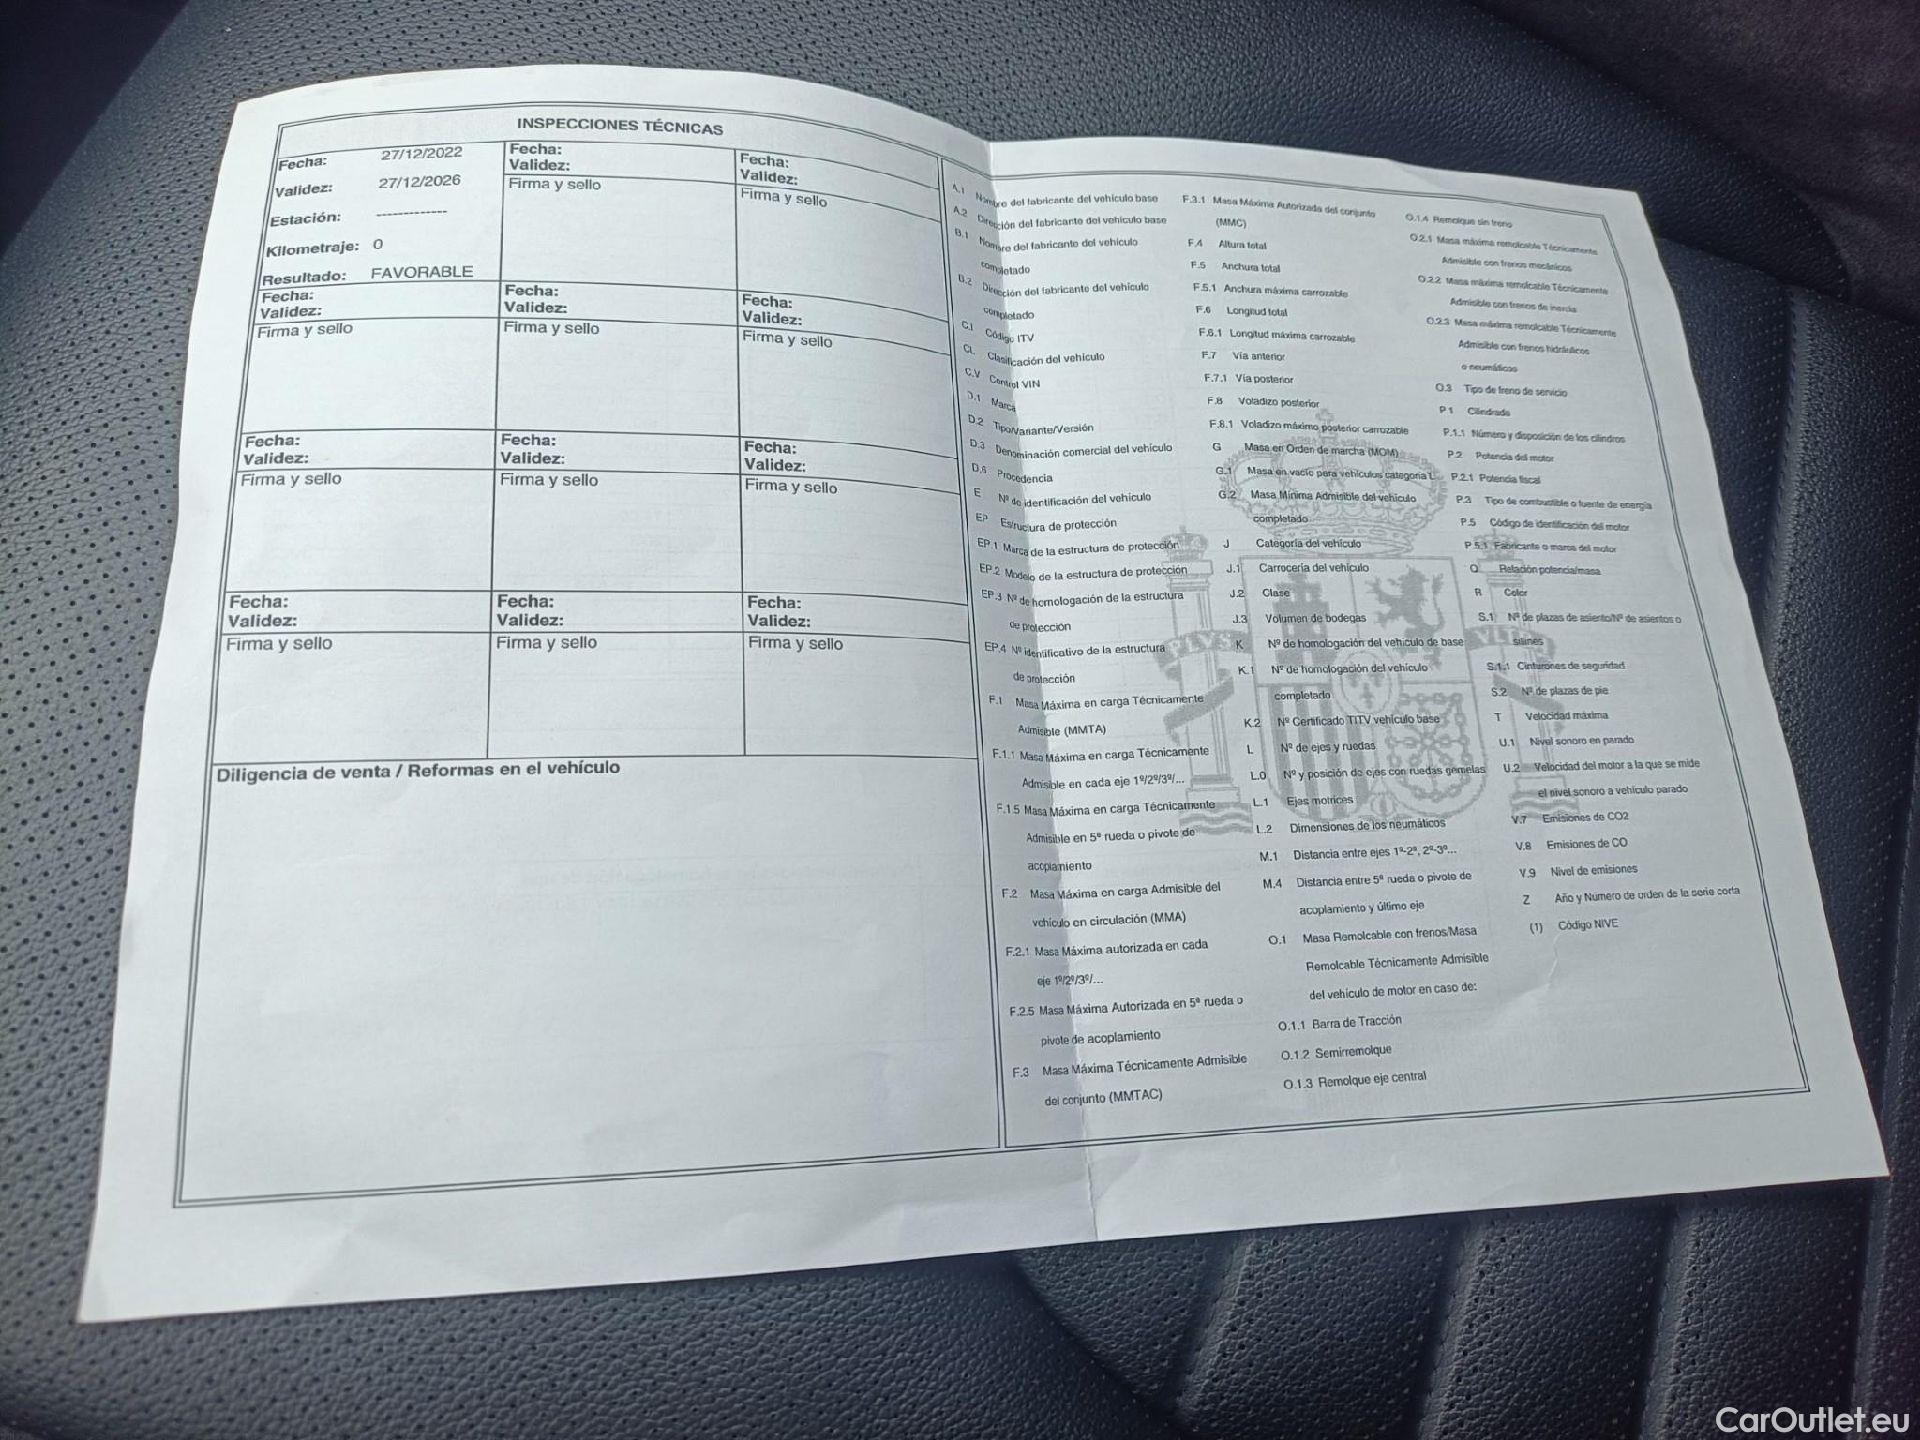 INSPECCIONES TÉCNICAS
Fecha: 27/12/2022
Validez: 27/12/2026
Estación: -------------
Kilometraje: 0
Resultado: FAVORABLE
Fecha:
Validez:
Firma y sello
Fecha:
Validez:
Firma y sello
Fecha:
Validez:
Firma y sello
Fecha:
Validez:
Firma y sello
Fecha:
Validez:
Firma y sello
Fecha:
Validez:
Firma y sello
Fecha:
Validez:
Firma y sello
Fecha:
Validez:
Firma y sello
Fecha:
Validez:
Firma y sello
Fecha:
Validez:
Firma y sello
Fecha:
Validez:
Firma y sello
Diligencia de venta / Reformas en el vehículo
A.1 Nombre del fabricante del vehículo base
A.2 Dirección del fabricante del vehículo base
B.1 Nombre del fabricante del vehículo
completado
B.2 Dirección del fabricante del vehículo
completado
C.I Código ITV
CL Clasificación del vehículo
C.V Control VIN
D.1 Marca
D.2 Tipo/Variante/Versión
D.3 Denominación comercial del vehículo
D.6 Procedencia
E Nº de identificación del vehículo
EP Estructura de protección
EP.1 Marca de la estructura de protección
EP.2 Modelo de la estructura de protección
EP.3 Nº de homologación de la estructura
de protección
EP.4 Nº identificativo de la estructura
de protección
F.1 Masa Máxima en carga Técnicamente
Admisible (MMTA)
F.1.1 Masa Máxima en carga Técnicamente
Admisible en cada eje 1º/2º/3º/...
F.1.5 Masa Máxima en carga Técnicamente
Admisible en 5ª rueda o pivote de
acoplamiento
F.2 Masa Máxima en carga Admisible del
vehículo en circulación (MMA)
F.2.1 Masa Máxima autorizada en cada
eje 1º/2º/3º/...
F.2.5 Masa Máxima Autorizada en 5ª rueda o
pivote de acoplamiento
F.3 Masa Máxima Técnicamente Admisible
del conjunto (MMTAC)
F.3.1 Masa Máxima Autorizada del conjunto
(MMC)
F.4 Altura total
F.5 Anchura total
F.5.1 Anchura máxima carrozable
F.6 Longitud total
F.6.1 Longitud máxima carrozable
F.7 Vía anterior
F.7.1 Vía posterior
F.8 Voladizo posterior
F.8.1 Voladizo máximo posterior carrozable
G Masa en Orden de marcha (MOM)
G.1 Masa en vacío para vehículos categoría L
G.2 Masa Mínima Admisible del vehículo
completado
J Categoría del vehículo
J.1 Carrocería del vehículo
J.2 Clase
J.3 Volumen de bodegas
K Nº de homologación del vehículo de base
K.1 Nº de homologación del vehículo
completado
K.2 Nº Certificado TITV vehículo base
L Nº de ejes y ruedas
L.0 Nº y posición de ejes con ruedas gemelas
L.1 Ejes motrices
L.2 Dimensiones de los neumáticos
M.1 Distancia entre ejes 1º-2º, 2º-3º...
M.4 Distancia entre 5ª rueda o pivote de
acoplamiento y último eje
O.1 Masa Remolcable con frenos/Masa
Remolcable Técnicamente Admisible
del vehículo de motor en caso de:
O.1.1 Barra de Tracción
O.1.2 Semirremolque
O.1.3 Remolque eje central
O.1.4 Remolque sin freno
O.2.1 Masa máxima remolcable Técnicamente
Admisible con frenos mecánicos
O.2.2 Masa máxima remolcable Técnicamente
Admisible con frenos de inercia
O.2.3 Masa máxima remolcable Técnicamente
Admisible con frenos hidráulicos
o neumáticos
O.3 Tipo de freno de servicio
P.1 Cilindrada
P.1.1 Número y disposición de los cilindros
P.2 Potencia del motor
P.2.1 Potencia fiscal
P.3 Tipo de combustible o fuente de energía
P.5 Código de identificación del motor
P.5.1 Fabricante o marca del motor
Q Relación potencia/masa
R Color
S.1 Nº de plazas de asiento/Nº de asientos o
sillines
S.1.1 Cinturones de seguridad
S.2 Nº de plazas de pie
T Velocidad máxima
U.1 Nivel sonoro en parado
U.2 Velocidad del motor a la que se mide
el nivel sonoro a vehículo parado
V.7 Emisiones de CO2
V.8 Emisiones de CO
V.9 Nivel de emisiones
Z Año y Número de orden de la serie corta
(1) Código NIVE
CarOutlet.eu